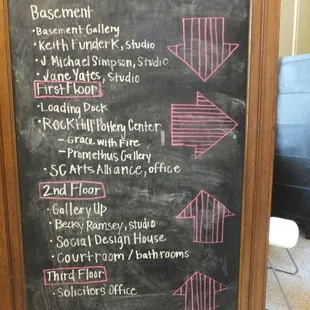 Basement
• Basement Gallery
• Keith Funderk, studio
• J Michael Simpson, studio
• Jane Yates, studio
First Floor
• Loading Dock
• Rock Hill Pottery Center
- Grace with Fire
- Promethus Gallery
• SC Arts Alliance, office
2nd Floor
• Gallery Up
• Becky Ramsey, studio
• Social Design House
• Courtroom / bathrooms
Third Floor
• Solicitors Office